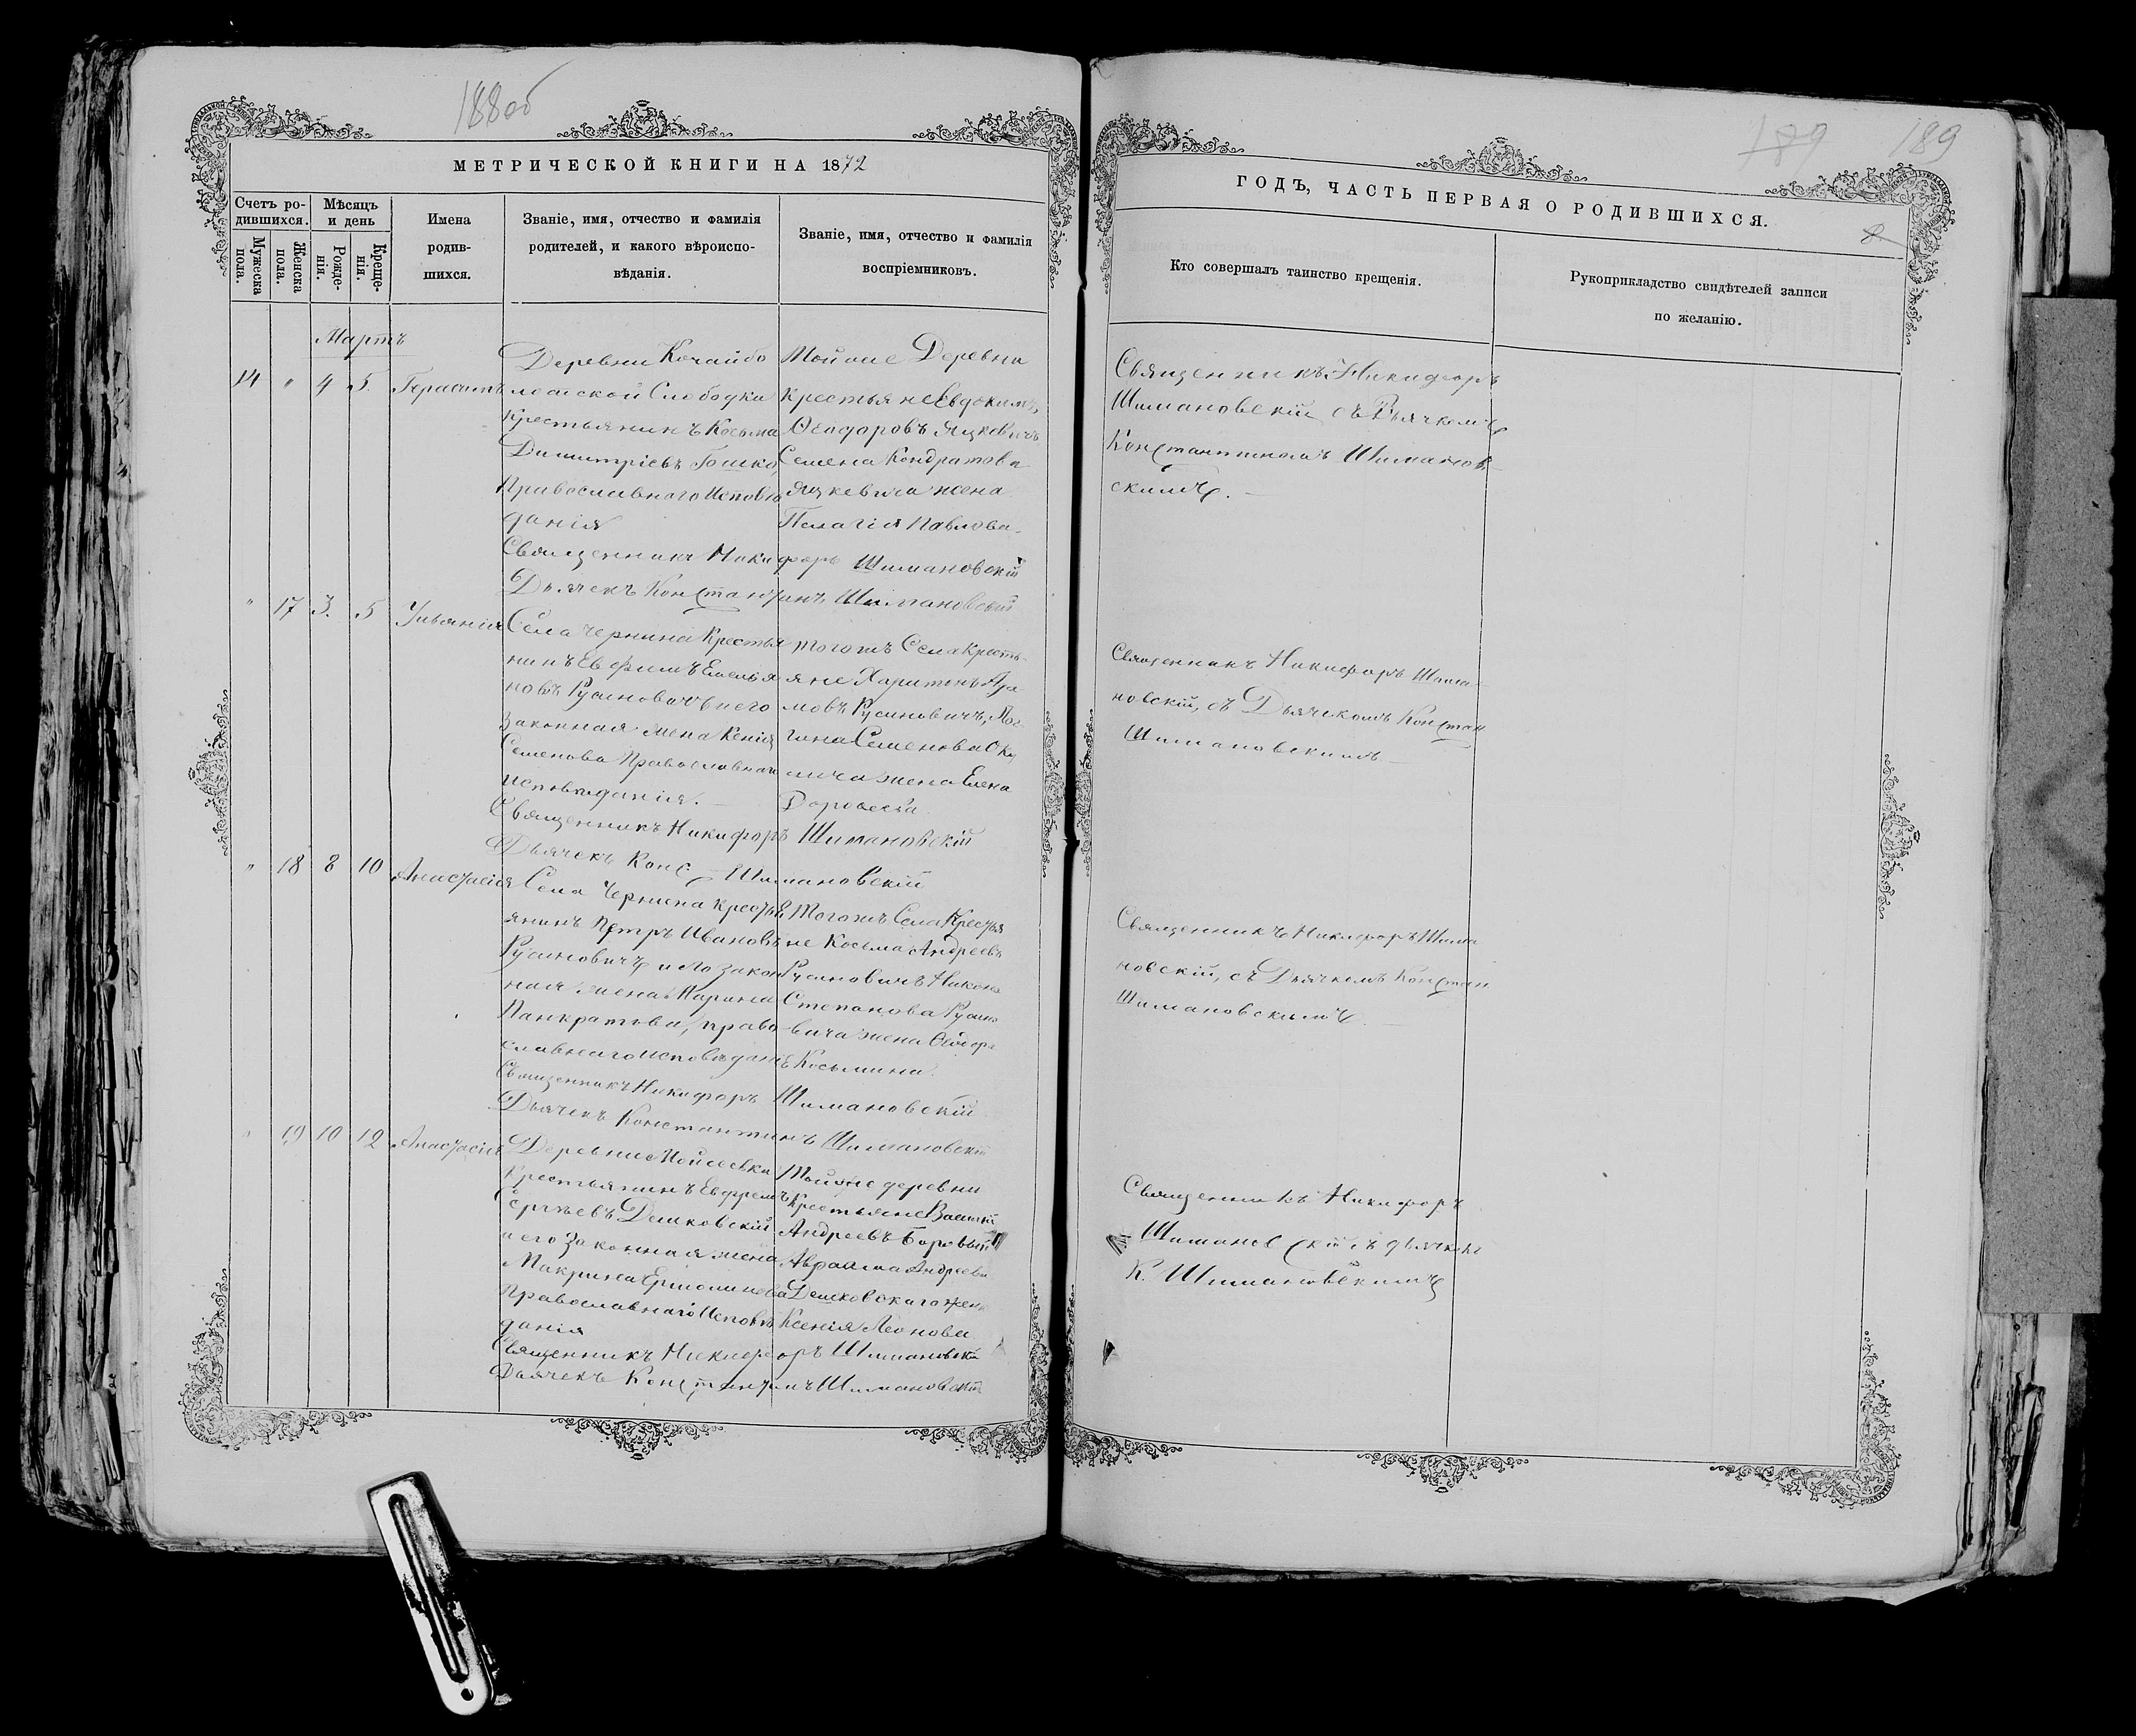 188об
МЕТРИЧЕСКОЙ КНИГИ НА 1872
Счетъ родившихся.
Мужеска пола.
Женска пола.
Мѣсяцъ и день
Рожденія.
Крещенія.
Имена родившихся.
Званіе, имя, отчество и фамилія
родителей, и какого вѣроиспо-
вѣданія.
Званіе, имя, отчество и фамилія
воспріемниковъ.
Мартъ
14 " 4 5. Герасимъ
Деревни
ской Слободки
Крестьянинъ Косьма
Димитріевъ
Православнаго Исповѣ
данія
Тойоже Деревни
Крестьяне Евдокимъ
Ѳеодоровъ Яцкевичъ
Семена Кондратова
Яцкевича жена
Пелагія Павлова
Священникъ Никифоръ Шимановскій
Дьячекъ Константинъ Шимановскій
" 17 3. 5 Ульянія
Села Чернина Крестья
нинъ Евфимъ Емелія
новъ Русиновичъ и его
Законная жена Ксенія
Семенова Православнаго
исповѣданія.
тогожъ Села Кресть-
яне Харитонъ
мовъ Русиновичъ,
гина Семенова
жена Елена
Священникъ Никифоръ Шимановскій
Дьячекъ Конс Шимановскій
" 18 8 10 Анастасія
Села Чернина Кресть
янинъ Петръ Ивановъ
Русиновичъ и его закон
ная жена Марина
Панкратова, право-
славнаго исповѣдан
Тогожъ Села Крестья
не Косьма Андреевъ
Русиновичъ Никона
Степанова Русино
вича жена Ѳеодора
Косьмина.
Священникъ Никифоръ Шимановскій
Дьячекъ Константинъ Шимановскій
" 19 10 12 Анастасія
Деревни Моисеевки
Крестьянинъ Евфремъ
Сергѣевъ Дешковскій
и его Законная жена
Макрина
Православнаго Исповѣ
данія
Тойоже деревни
Крестьяне Василій
Андреевъ Боровый
Авраама Андреева
Дешковскаго жена
Ксенія Леонова
Священникъ Никифоръ Шимановскій
Дьячекъ Константинъ Шимановскій
189 189
ГОДЪ, ЧАСТЬ ПЕРВАЯ О РОДИВШИХСЯ.
8
Кто совершалъ таинство крещенія.
Рукоприкладство свидѣтелей записи
по желанію.
Священникъ Никифоръ
Шимановскій съ Дьячкомъ
Константиномъ Шиманов-
скимъ.
Священникъ Никифоръ Шима-
новскій, съ Дьячкомъ Констан
Шимановскимъ
Священникъ Никифоръ Шима
новскій, съ Дьячкомъ Констан
Шимановскимъ
Священникъ Никифоръ
Шимановскій съ дьячкомъ
К. Шимановскимъ